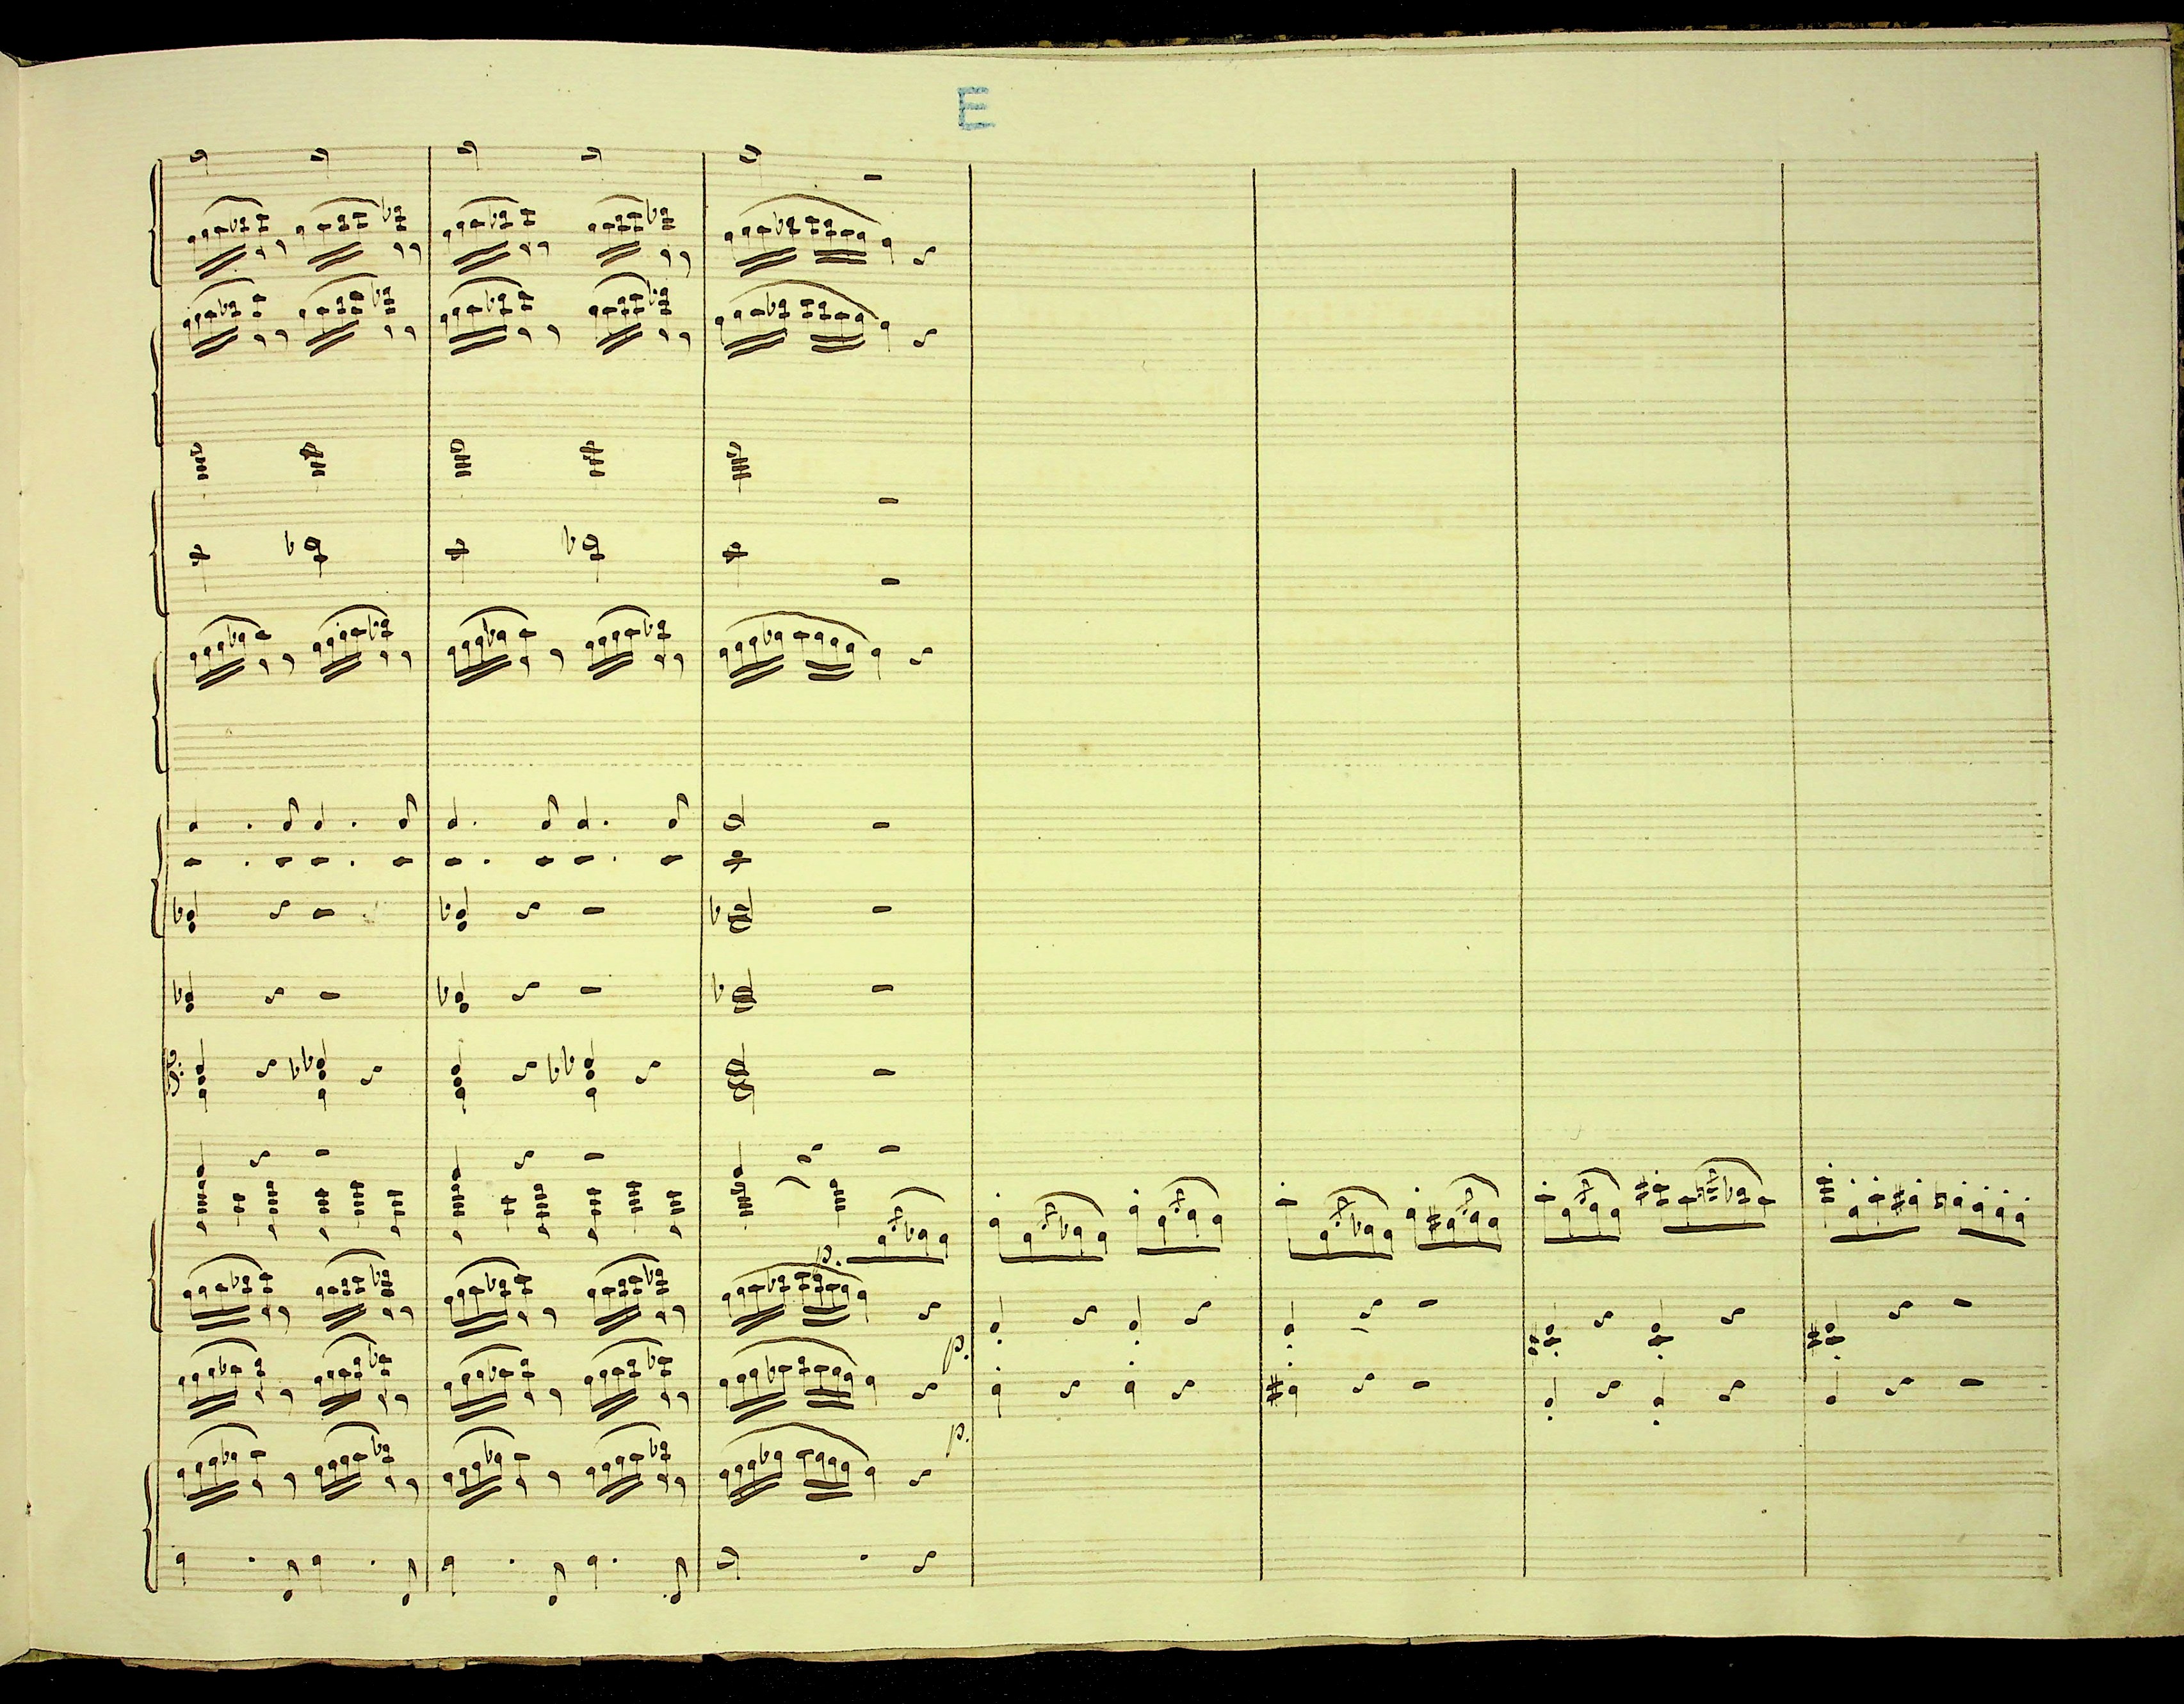 E
p.
p.
p.